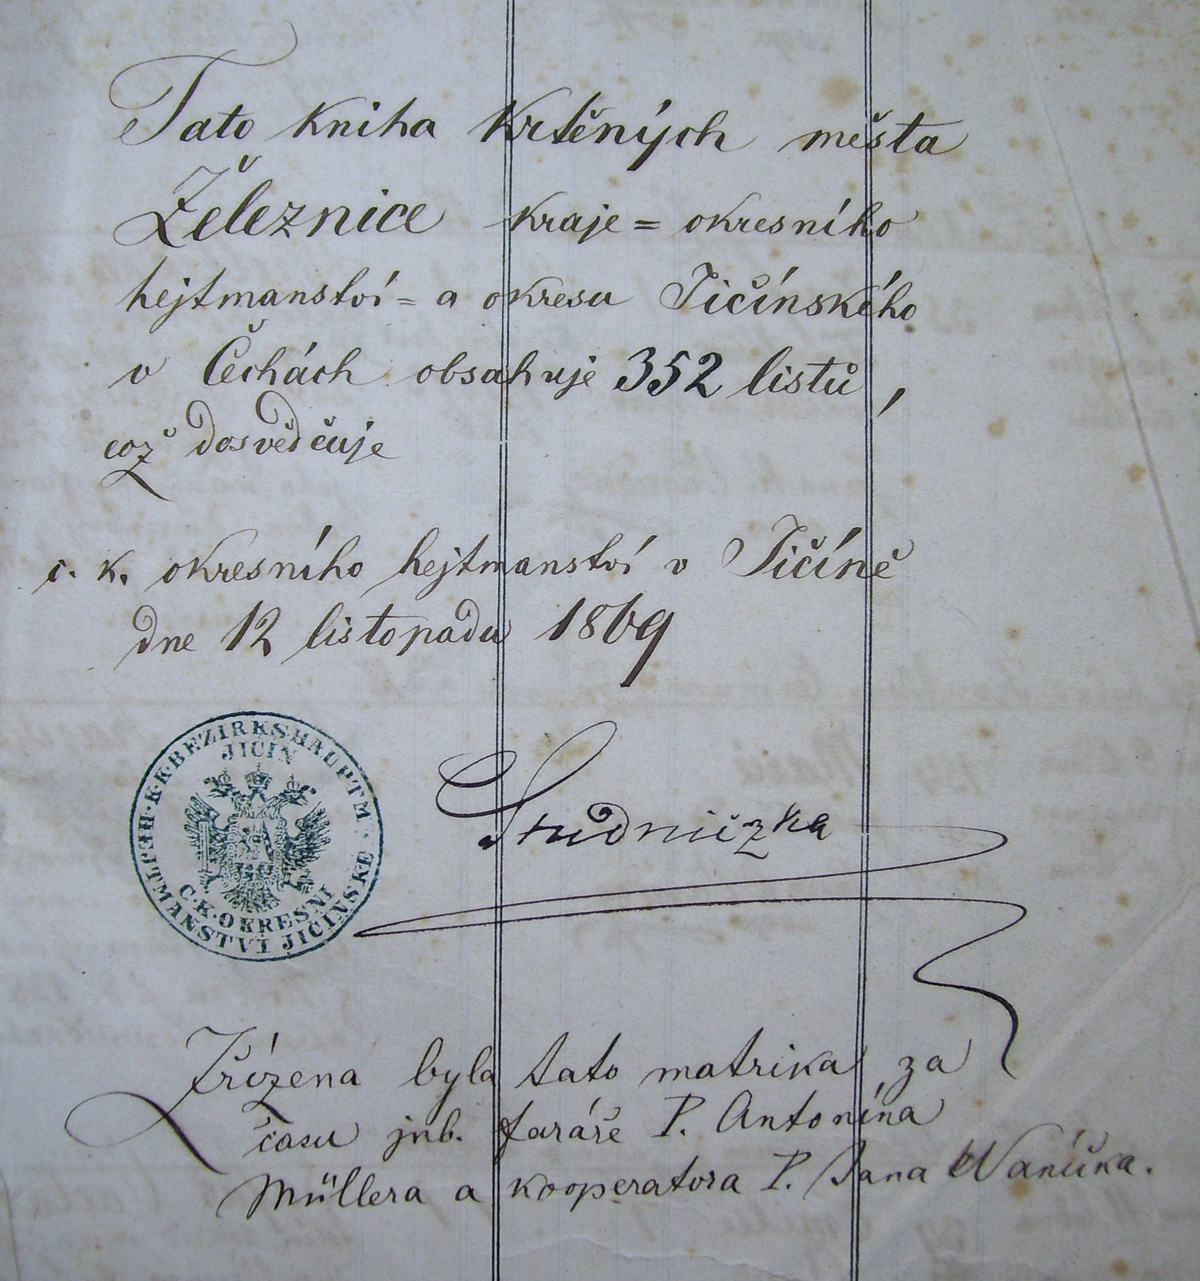 Tato kniha krtěných města
Železnice kraje = okresního
hejtmanství = a okresu Jičínského
v Čechách obsahuje 352 listů,
což dosvědčuje
c. k. okresního hejtmanství v Jičíně
dne 12 listopadu 1869
K. K. BEZIRKSHAUPTM.
JICIN
C. K. OKRESNI
HEJTMANSTVI JICINSKE
Studniczka
Zřízena byla tato matrika za
času jub. faráře P. Antonína
Müllera a kooperatora P. Jana Waníčka.